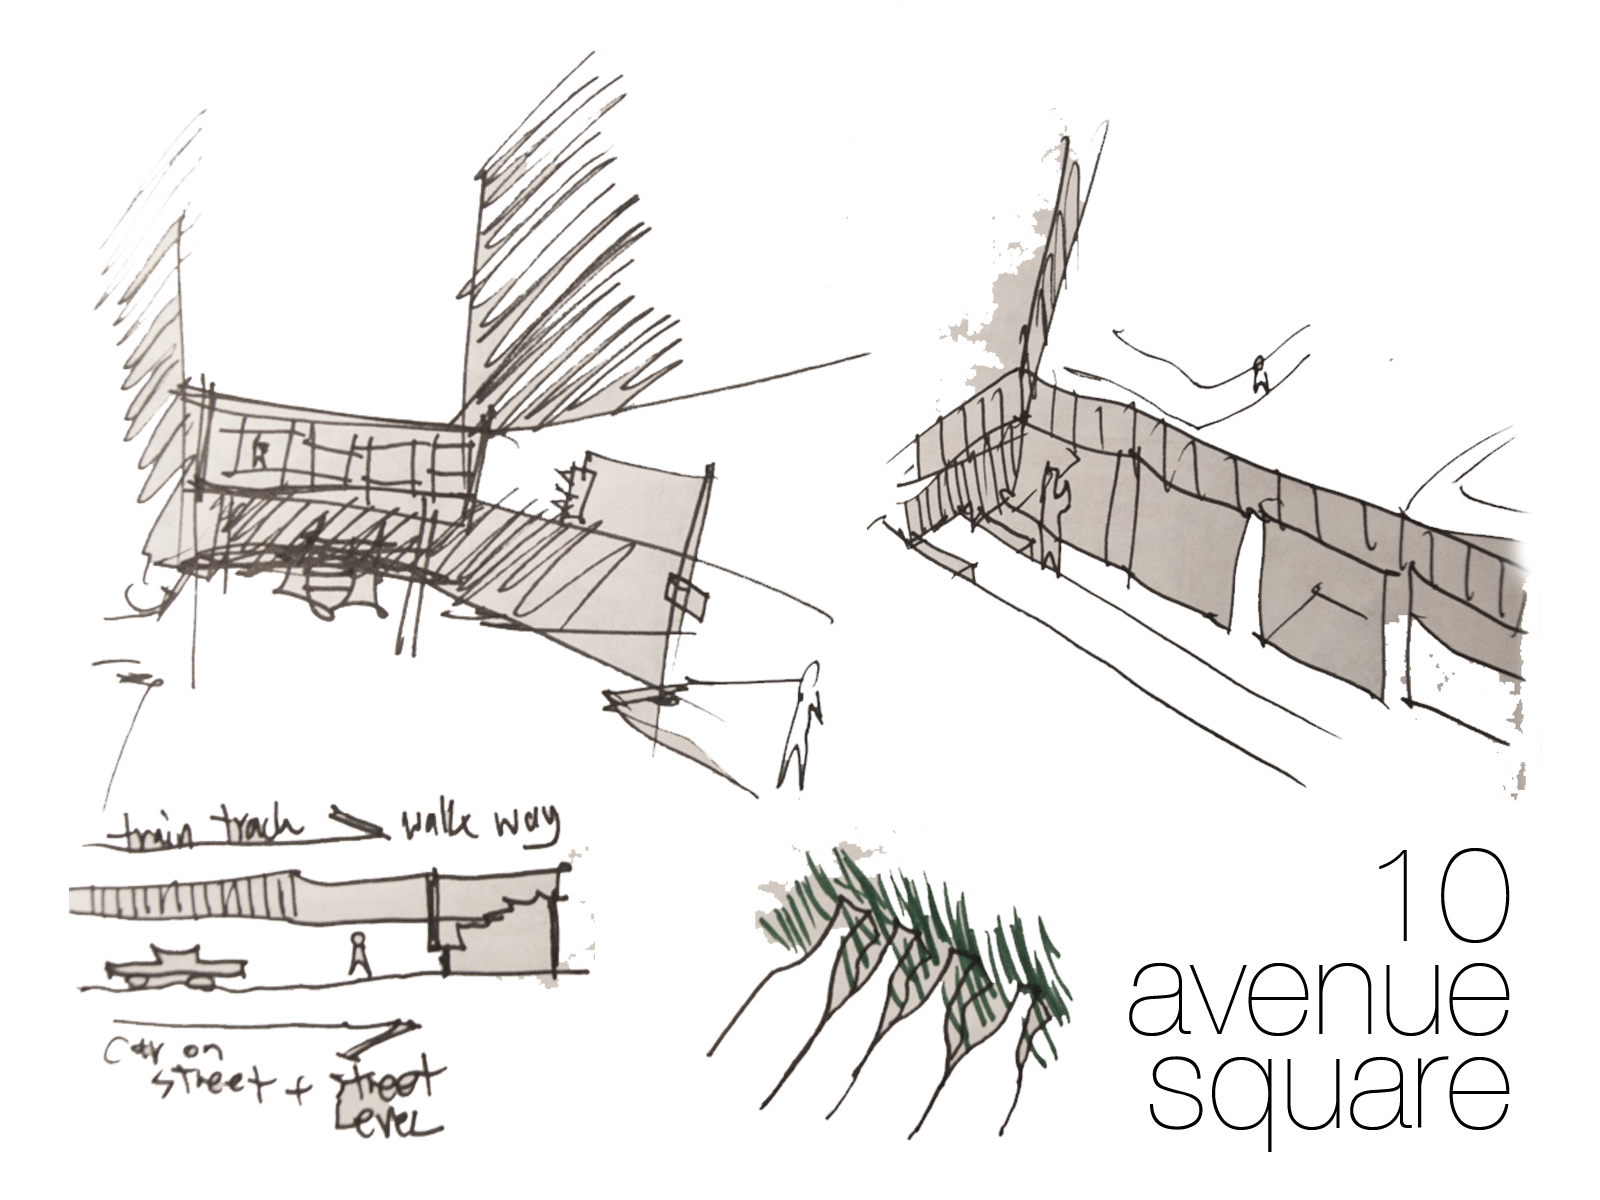 train track → walk way
car on
street + street
level
10
avenue
square